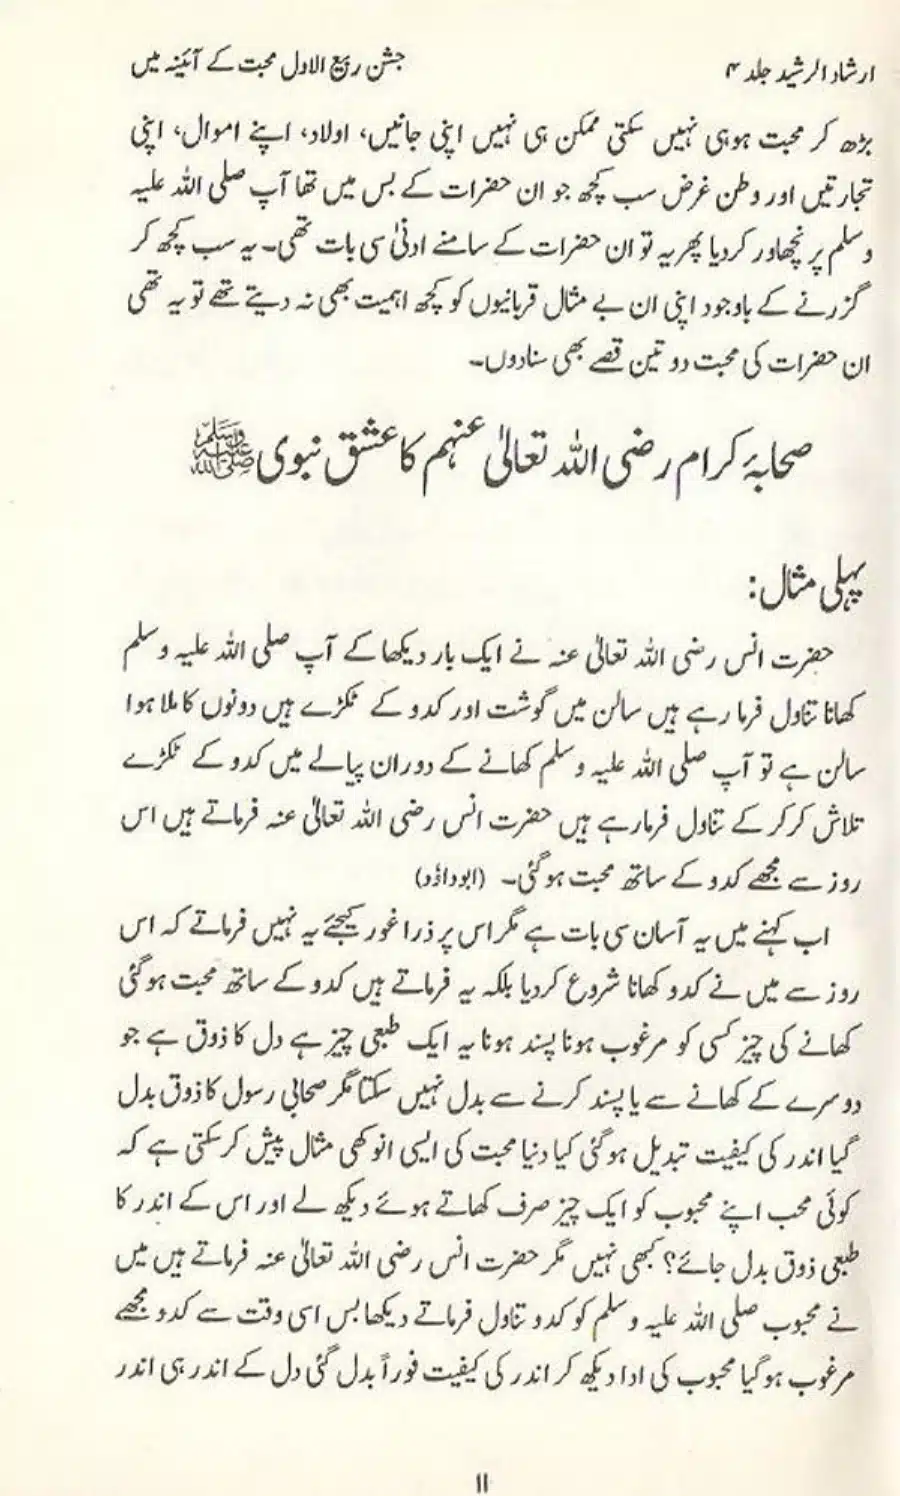 ارشاد الرشید جلد ۴
جشن ربیع الاول محبت کے آئینہ میں
بڑھ کر محبت ہو ہی نہیں سکتی ممکن ہی نہیں اپنی جانیں، اولاد، اپنے اموال، اپنی
تجارتیں اور وطن غرض سب کچھ جو ان حضرات کے بس میں تھا آپ صلی اللہ علیہ
وسلم پر نچھاور کردیا پھر یہ تو ان حضرات کے سامنے ادنیٰ سی بات تھی۔ یہ سب کچھ کر
گزرنے کے باوجود اپنی ان بے مثال قربانیوں کو کچھ اہمیت بھی نہ دیتے تھے تو یہ تھی
ان حضرات کی محبت دو تین قصے بھی سنادوں۔
صحابۂ کرام رضی اللہ تعالیٰ عنہم کا عشق نبوی ﷺ
پہلی مثال:
حضرت انس رضی اللہ تعالیٰ عنہ نے ایک بار دیکھا کے آپ صلی اللہ علیہ وسلم
کھانا تناول فرما رہے ہیں سالن میں گوشت اور کدو کے ٹکڑے ہیں دونوں کا ملا ہوا
سالن ہے تو آپ صلی اللہ علیہ وسلم کھانے کے دوران پیالے میں کدو کے ٹکڑے
تلاش کرکر کے تناول فرمارہے ہیں حضرت انس رضی اللہ تعالیٰ عنہ فرماتے ہیں اس
روز سے مجھے کدو کے ساتھ محبت ہوگئی۔ (ابوداؤد)
اب کہنے میں یہ آسان سی بات ہے مگر اس پر ذرا غور کیجئے یہ نہیں فرماتے کہ اس
روز سے میں نے کدو کھانا شروع کردیا بلکہ یہ فرماتے ہیں کدو کے ساتھ محبت ہوگئی
کھانے کی چیز کسی کو مرغوب ہونا پسند ہونا یہ ایک طبعی چیز ہے دل کا ذوق ہے جو
دوسرے کے کھانے سے یا پسند کرنے سے بدل نہیں سکتا مگر صحابی رسول کا ذوق بدل
گیا اندر کی کیفیت تبدیل ہوگئی کیا دنیا محبت کی ایسی انوکھی مثال پیش کرسکتی ہے کہ
کوئی محب اپنے محبوب کو ایک چیز صرف کھاتے ہوئے دیکھ لے اور اس کے اندر کا
طبعی ذوق بدل جائے؟ کبھی نہیں مگر حضرت انس رضی اللہ تعالیٰ عنہ فرماتے ہیں میں
نے محبوب صلی اللہ علیہ وسلم کو کدو تناول فرماتے دیکھا بس اسی وقت سے کدو مجھے
مرغوب ہوگیا محبوب کی ادا دیکھ کر اندر کی کیفیت فوراً بدل گئی دل کے اندر ہی اندر
۱۱